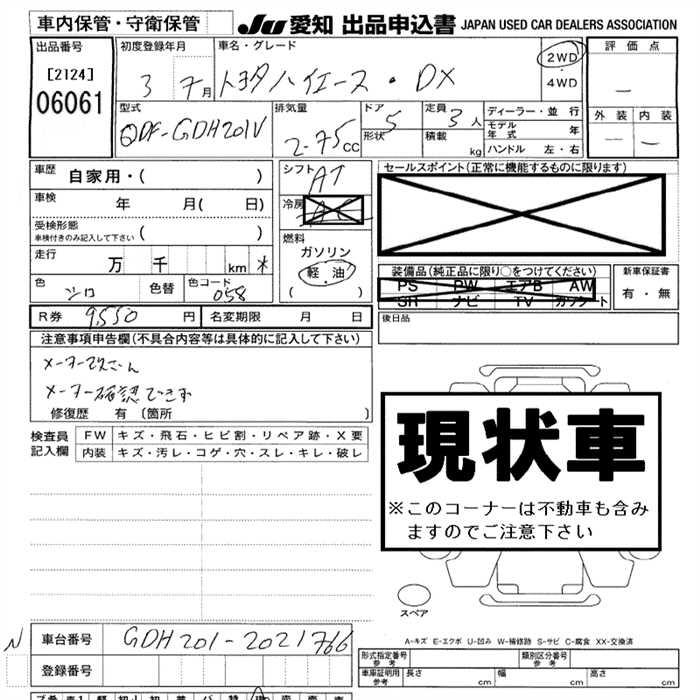 車内保管・守衛保管
JU 愛知 出品申込書 JAPAN USED CAR DEALERS ASSOCIATION
出品番号 初度登録年月 車名・グレード 2WD 評価点
[2124] 3 7月 トヨタハイエース・DX 4WD －
06061
型式 排気量 ドア 5 定員 3人 ディーラー・並行 外装 内装
QDF-GDH201V 2-75cc 形状 積載 kg モデル年式 年 － －
ハンドル 左・右
車歴 自家用・( ) シフト AT セールスポイント(正常に機能するものに限ります)
車検 年 月( 日) 冷房 AC
受検形態 ( )
車検付きのみ記入して下さい
燃料
ガソリン
走行 万 千 km 軽油 装備品(純正品に限り○をつけてください) 新車保証書
( )
PS PW エアB AW 有・無
色 シロ 色替 色コード 058 SR ナビ TV カセット
R券 9550 円 名変期限 月 日 後日品
注意事項申告欄(不具合内容等は具体的に記入して下さい)
メーター確認できず
修復歴 有 [箇所 ]
現状車
※このコーナーは不動車も含み
ますのでご注意下さい
検査員 FW キズ・飛石・ヒビ割・リペア跡・X要
記入欄 内装 キズ・汚レ・コゲ・穴・スレ・キレ・破レ
スペア
A-キズ E-エクボ U-凹み W-補修跡 S-サビ C-腐食 XX-交換済
N 車台番号 GDH201-2021766
登録番号
形式指定番号 参考 類別区分番号 参考
車庫証明用 参考 長さ cm 幅 cm 高さ cm